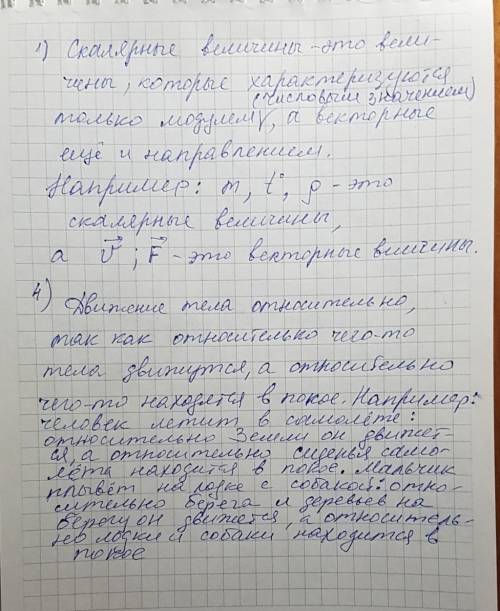 1) Скалярные величины - это вели-
чины, которые характеризуются
(числовым значением)
только модулем, а векторные
ещё и направлением.
Например: m, t°, ρ - это
скалярные величины,
а v⃗ ; F⃗ - это векторные величины.
4) Движение тела относительно,
так как относительно чего-то
тела движутся, а относительно
чего-то находятся в покое. Например:
человек летит в самолёте:
относительно Земли он движет-
ся, а относительно сиденья само-
лёта находится в покое. Мальчик
плывёт на лодке с собакой: отно-
сительно берега и деревьев на
берегу он движется, а относитель-
но лодки и собаки находится в
покое